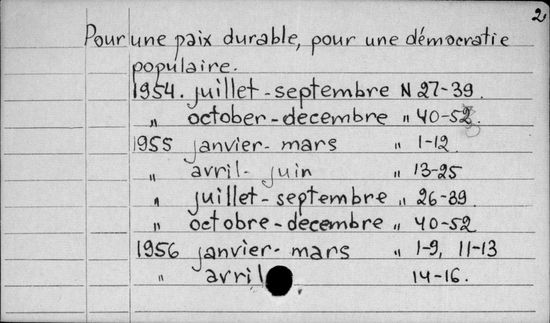 2
Pour une paix durable, pour une démocratie
populaire.
1954. juillet - septembre N 27-39.
" october - decembre " 40-52
1955 janvier - mars " 1-12
" avril - juin " 13-25
" juillet - septembre " 26-39
" octobre - decembre " 40-52
1956 janvier - mars " 1-9, 11-13
" avril 14-16.